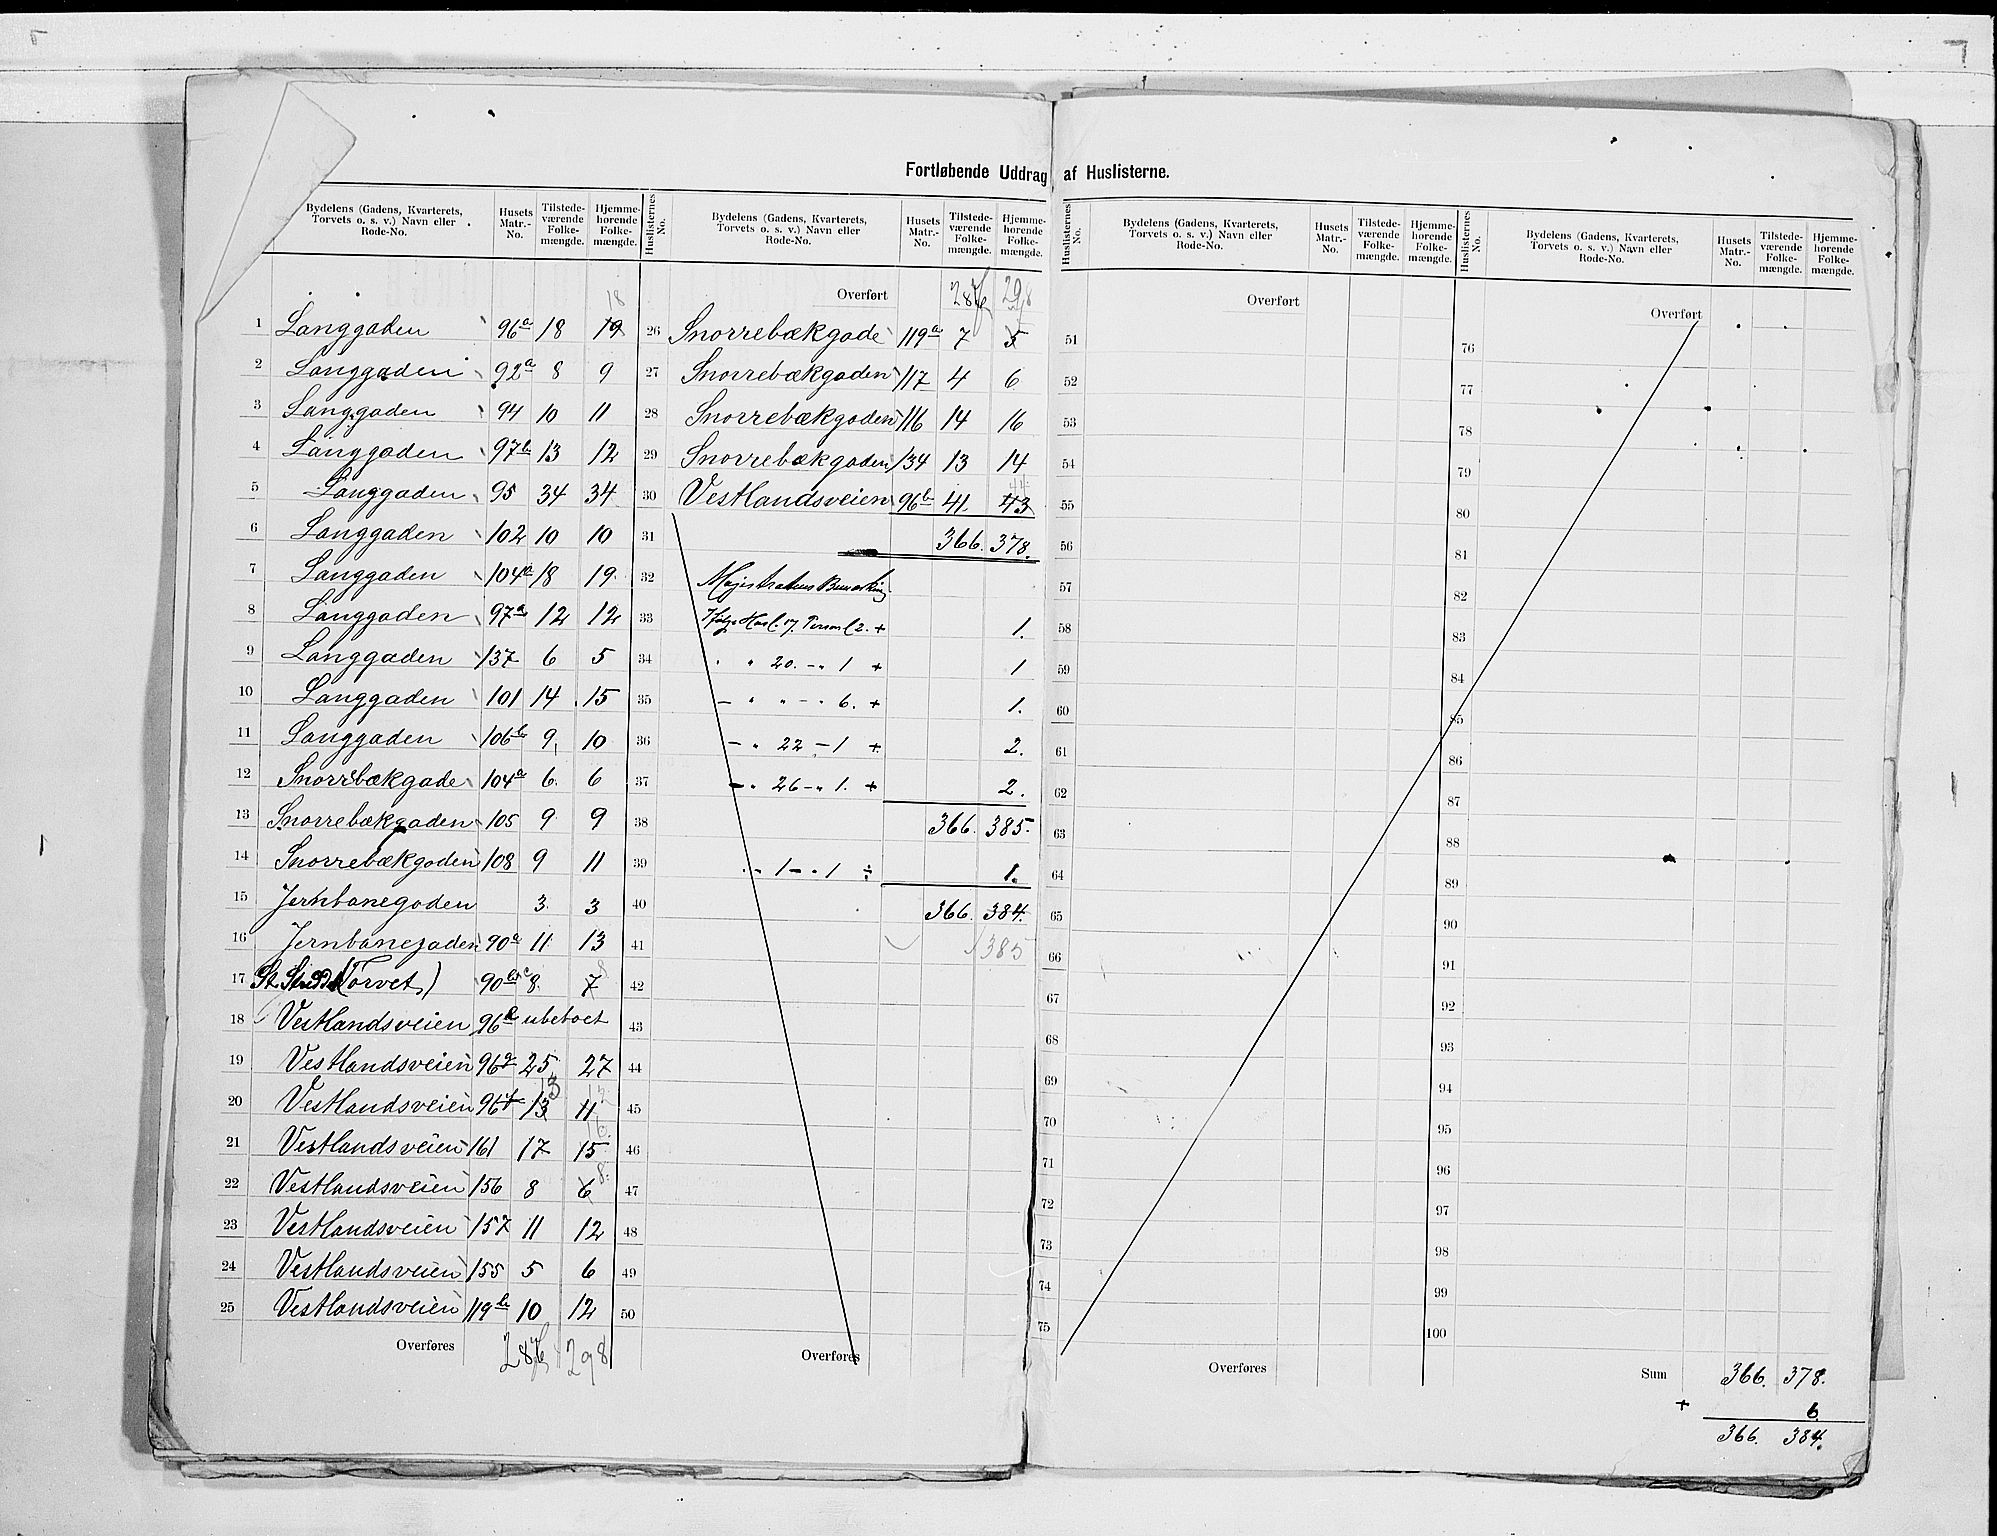 Fortløbende Uddrag af Huslisterne.
Bydelens (Gadens, Kvarterets, Torvets o. s. v.) Navn eller Rode-No. Husets Matr.-No. Tilstedeværende Folkemængde. Hjemmehørende Folkemængde.
18
1 Langgaden 96a 18 19
2 Langgaden 92a 8 9
3 Langgaden 94 10 11
4 Langgaden 97b 13 12
5 Langgaden 95 34 34
6 Langgaden 102 10 10
7 Langgaden 104a 18 19.
8 Langgaden 97a 12 12
9 Langgaden 137 6 5
10 Langgaden 101 14 15
11 Langgaden 106b 9. 10
12 Snorrebækgade 104a 6. 6
13 Snorrebækgaden 105 9 9
14 Snorrebækgaden 108 9 11
15 Jernbanegaden 3. 3
16 Jernbanegaden 90a 11. 13
17 (Torvet) 8. 7
18 Vestlandsveien ubeboet
19 Vestlandsveien 25. 27
20 Vestlandsveien 96f 13 13 11
21 Vestlandsveien 161 17 15
22 Vestlandsveien 156 8 6 8.
23 Vestlandsveien 157 11 12
24 Vestlandsveien 155 5 6
25 Vestlandsveien 119b 10 12
Overføres 298
Huslisternes No. Bydelens (Gadens, Kvarterets, Torvets o. s. v.) Navn eller Rode-No. Husets Matr.-No. Tilstedeværende Folkemængde. Hjemmehørende Folkemængde.
Overført 298
26 Snorrebækgade 119a 7 5
27 Snorrebækgaden 117 4 6
28 Snorrebækgaden 116 14 16
29 Snorrebækgaden 134 13 14
44
30 Vestlandsveien 96b 41 43
31 366. 378.
32 Magistratens Bemærkning
33 Ifølge Husl. 17. Person 2. + 1.
34 " " 20. - " 1 + 1
35 - " " - " 6. + 1.
36 - " 22 - 1 + 2.
37 - " 26 - " 1. + 2.
38 366. 385.
39 " 1 - " 1 ÷ 1.
40 366. 384.
41 385
42
43
44
45
46
47
48
49
50
Overføres
Huslisternes No. Bydelens (Gadens, Kvarterets, Torvets o. s. v.) Navn eller Rode-No. Husets Matr.-No. Tilstedeværende Folkemængde. Hjemmehørende Folkemængde.
Overført
51
52
53
54
55
56
57
58
59
60
61
62
63
64
65
66
67
68
69
70
71
72
73
74
75
Overføres
Huslisternes No. Bydelens (Gadens, Kvarterets, Torvets o. s. v.) Navn eller Rode-No. Husets Matr.-No. Tilstedeværende Folkemængde. Hjemmehørende Folkemængde.
Overført
76
77
78
79
80
81
82
83
84
85
86
87
88
89
90
91
92
93
94
95
96
97
98
99
100
Sum 366. 378.
+ 6
366. 384.